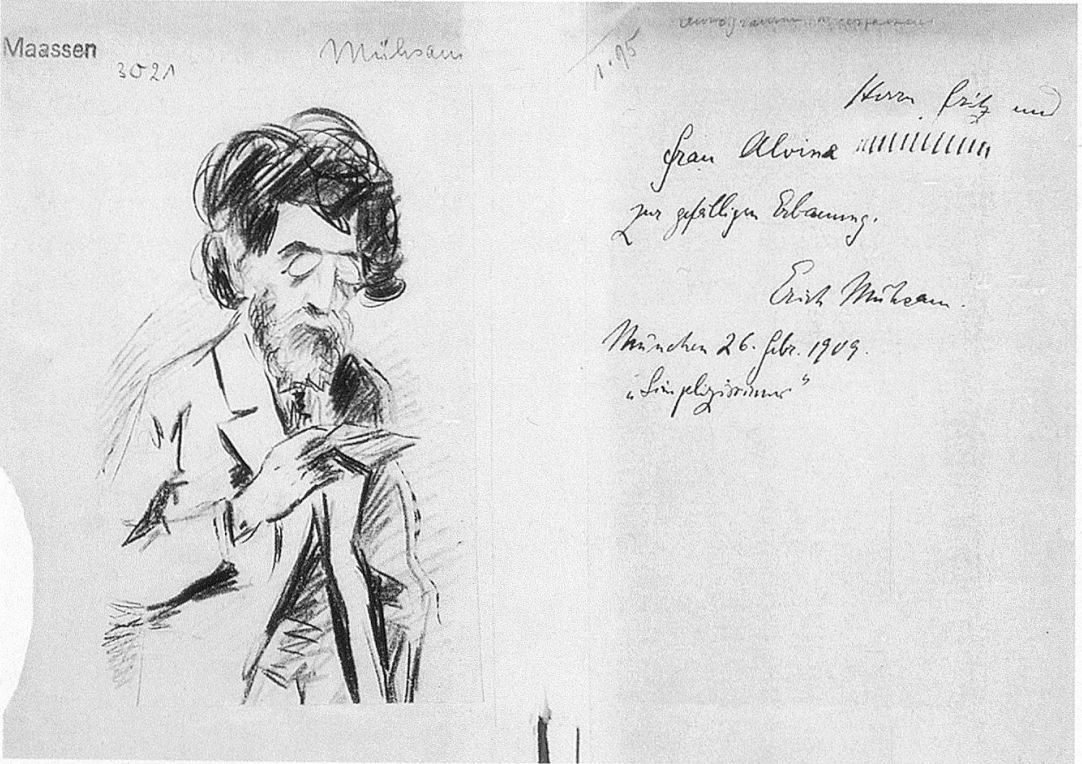 Maassen
3021
Mühsam
Herrn Fritz und
Frau Alvina
zur gefälligen Erbauung.
Erich Mühsam.
München 26. Febr. 1909.
„Simplizissimus“